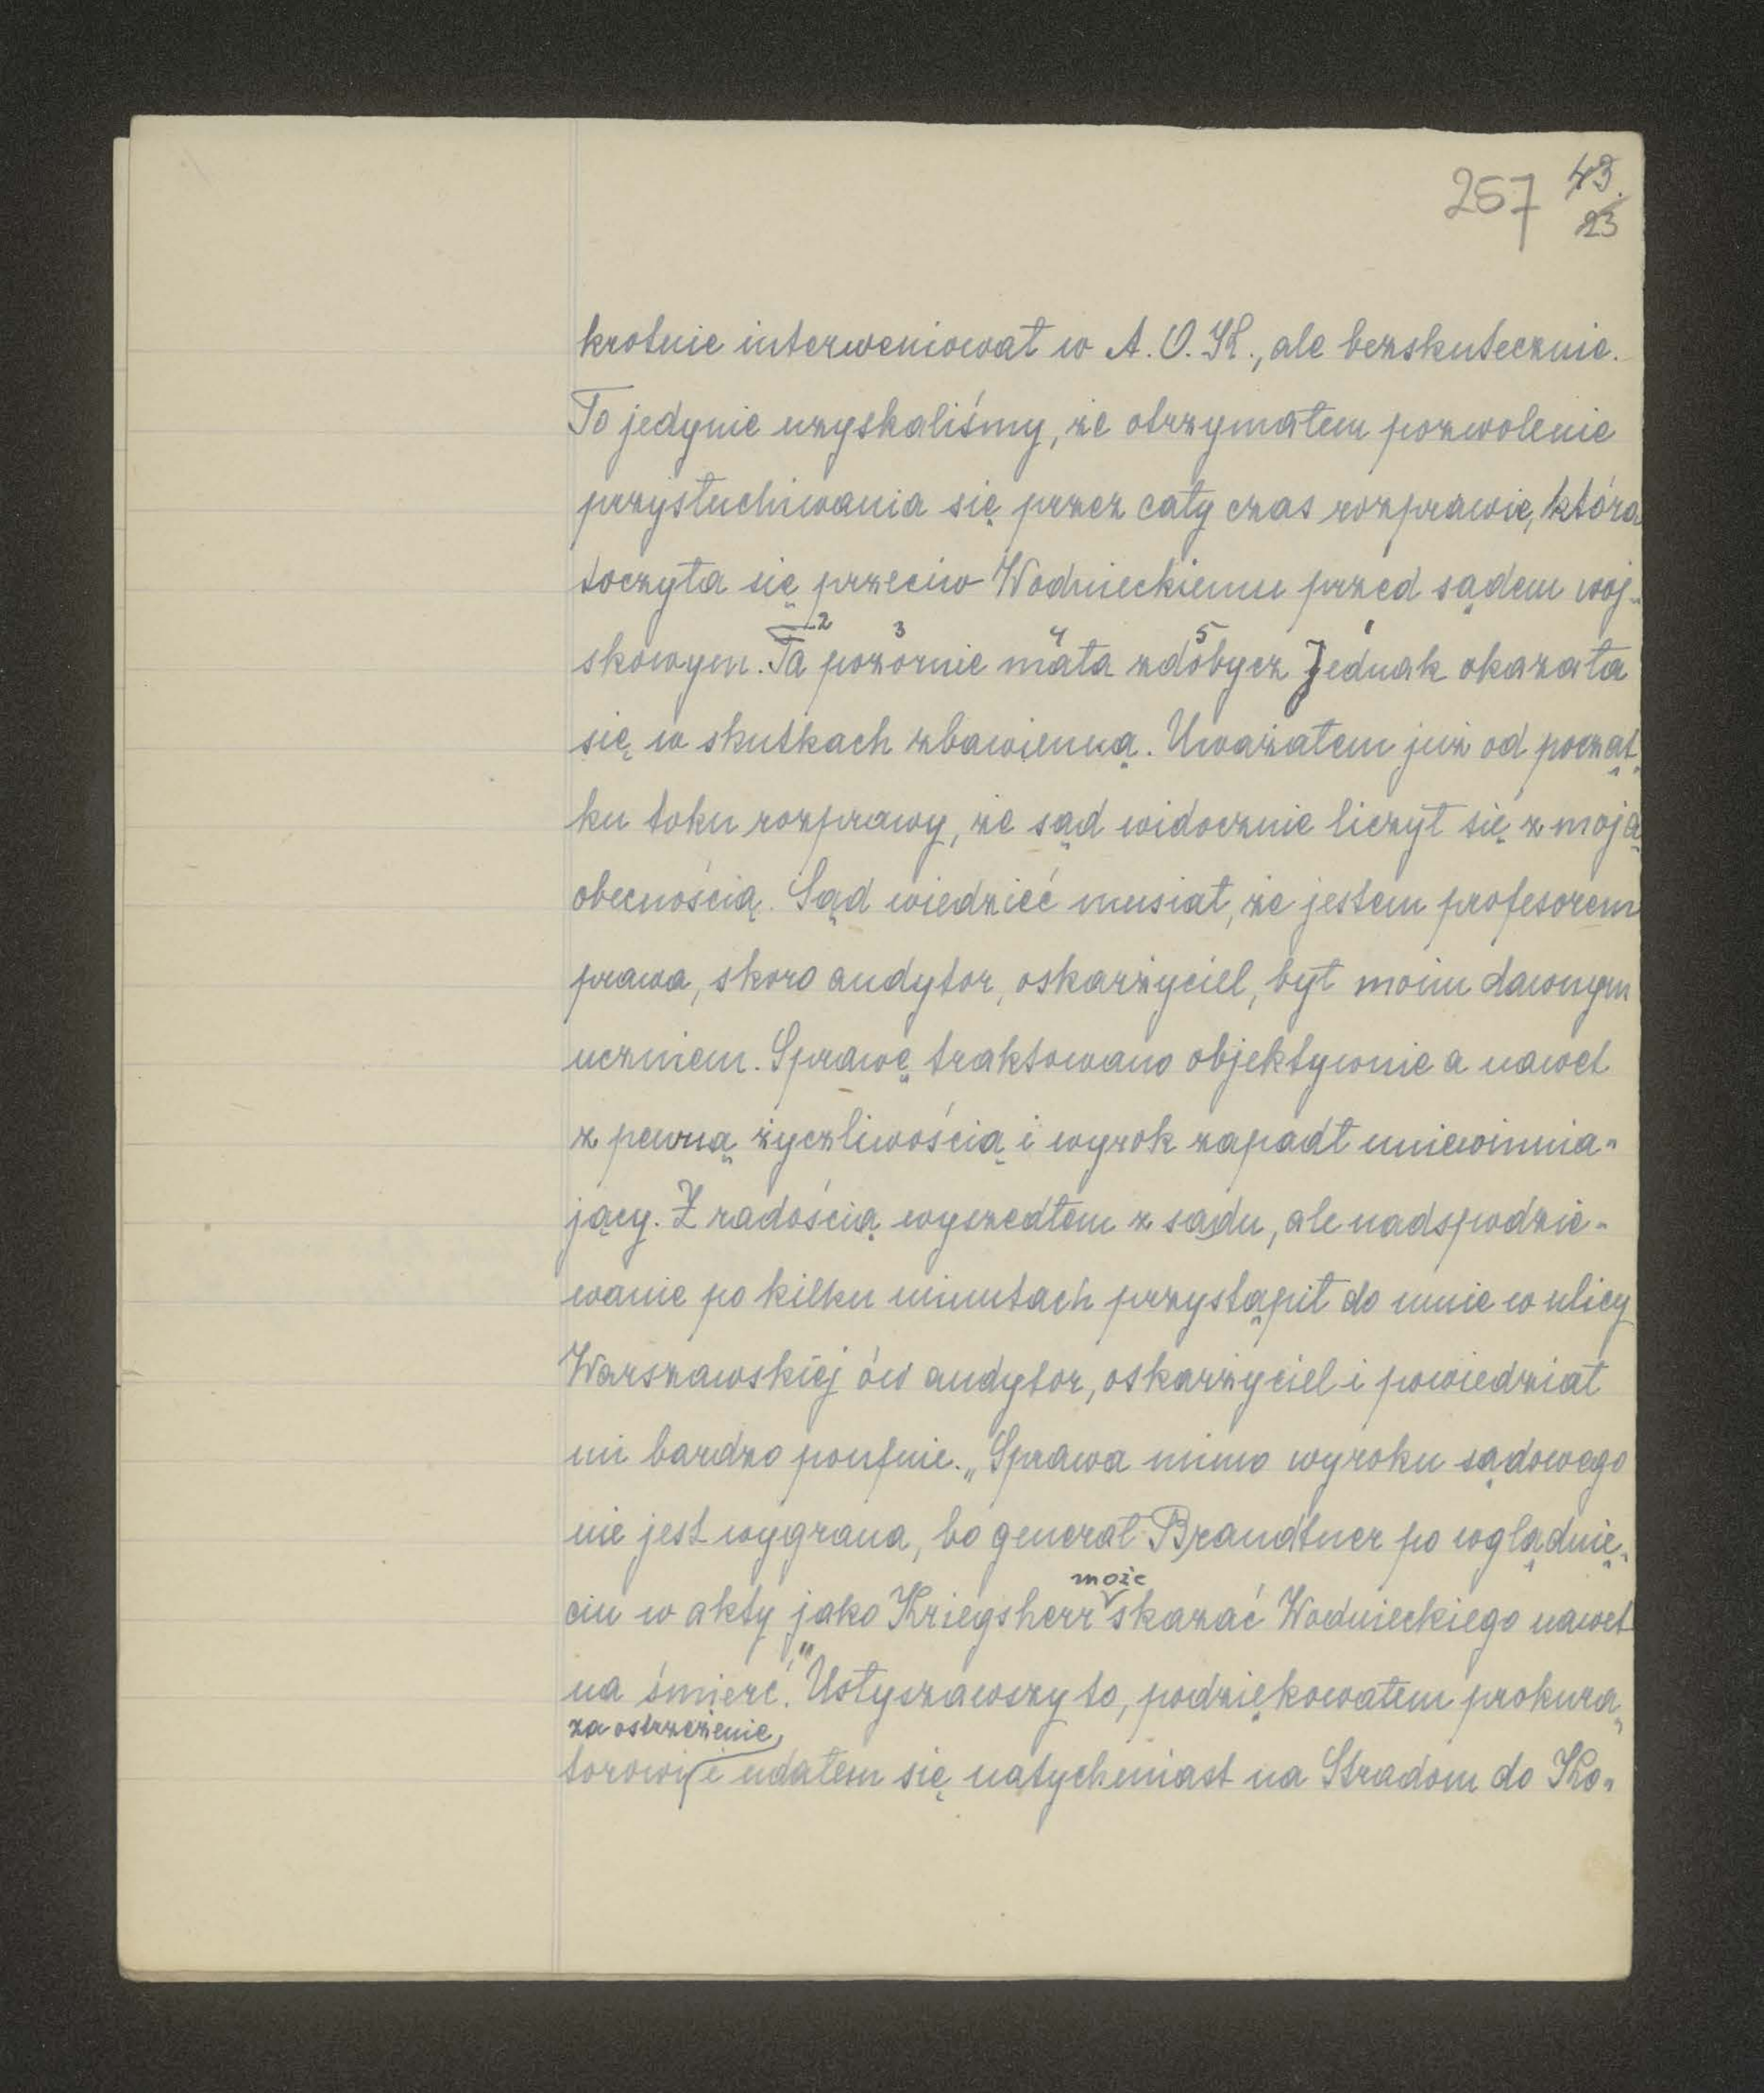 257 43.
23
krotnie interweniował w A. O. K., ale bezskutecznie.
To jedynie uzyskaliśmy, że otrzymałem pozwolenie
przysłuchiwania się przez cały czas rozprawie, która
toczyła się przeciw Wodnieckiemu przed sądem woj-
2 3 4 5 1
skowym. Ta pozornie mała zdobycz Jednak okazała
się w skutkach zbawienną. Uważałem już od począt-
ku toku rozprawy, że sąd widocznie liczył się z moją
obecnością. Sąd wiedzieć musiał, że jestem profesorem
prawa, skoro audytor, oskarżyciel, był moim dawnym
uczniem. Sprawę traktowano objektywnie a nawet
z pewną życzliwością i wyrok zapadł uniewinnia-
jący. Z radością wyszedłem z sądu, ale nadspodzie-
wanie po kilku minutach przystąpił do mnie w ulicy
Warszawskiej ów audytor, oskarżyciel i powiedział
mi bardzo poufnie. „Sprawa mimo wyroku sądowego
nie jest wygrana, bo generał Brandtner po wglądnię-
może
ciu w akty jako Kriegsherr skazać Wodnieckiego nawet
na śmierć." Usłyszawszy to, podziękowałem prokura-
za ostrzeżenie,
torowi i udałem się natychmiast na Stradom do Ko-